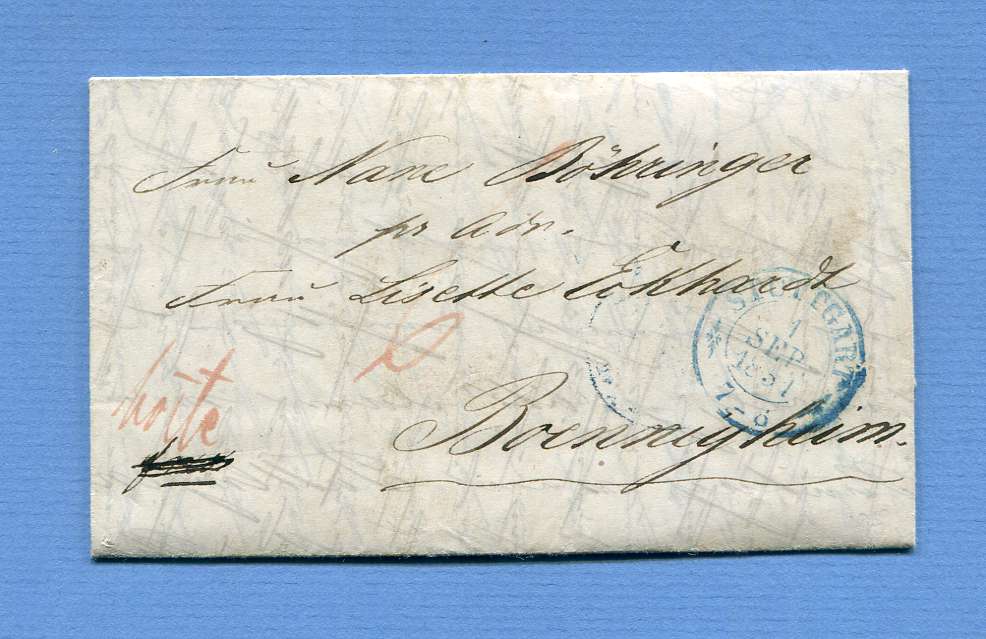 Frau Nane Böhringer
pr adr.
Frau Lisette Eckhardt
STUTTGART
1
SEP
1851
7-8
Boennigheim.